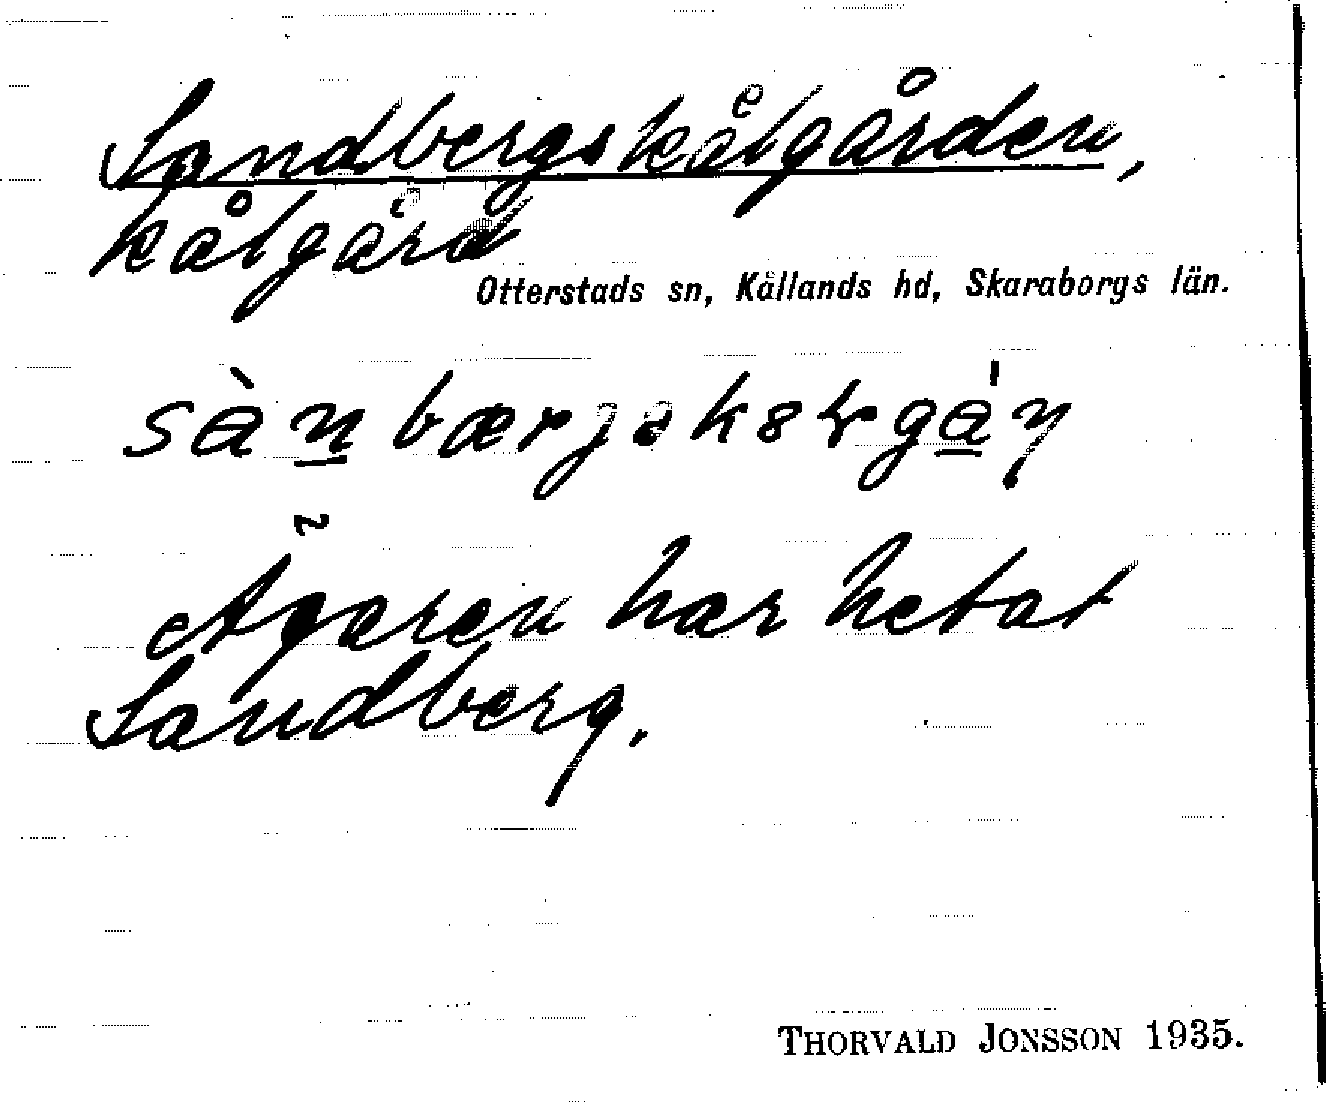 Sandbergskålgården,
kålgård
Otterstads sn, Kållands hd, Skaraborgs län.
Ägaren har hetat
Sandberg.
THORVALD JONSSON 1935.